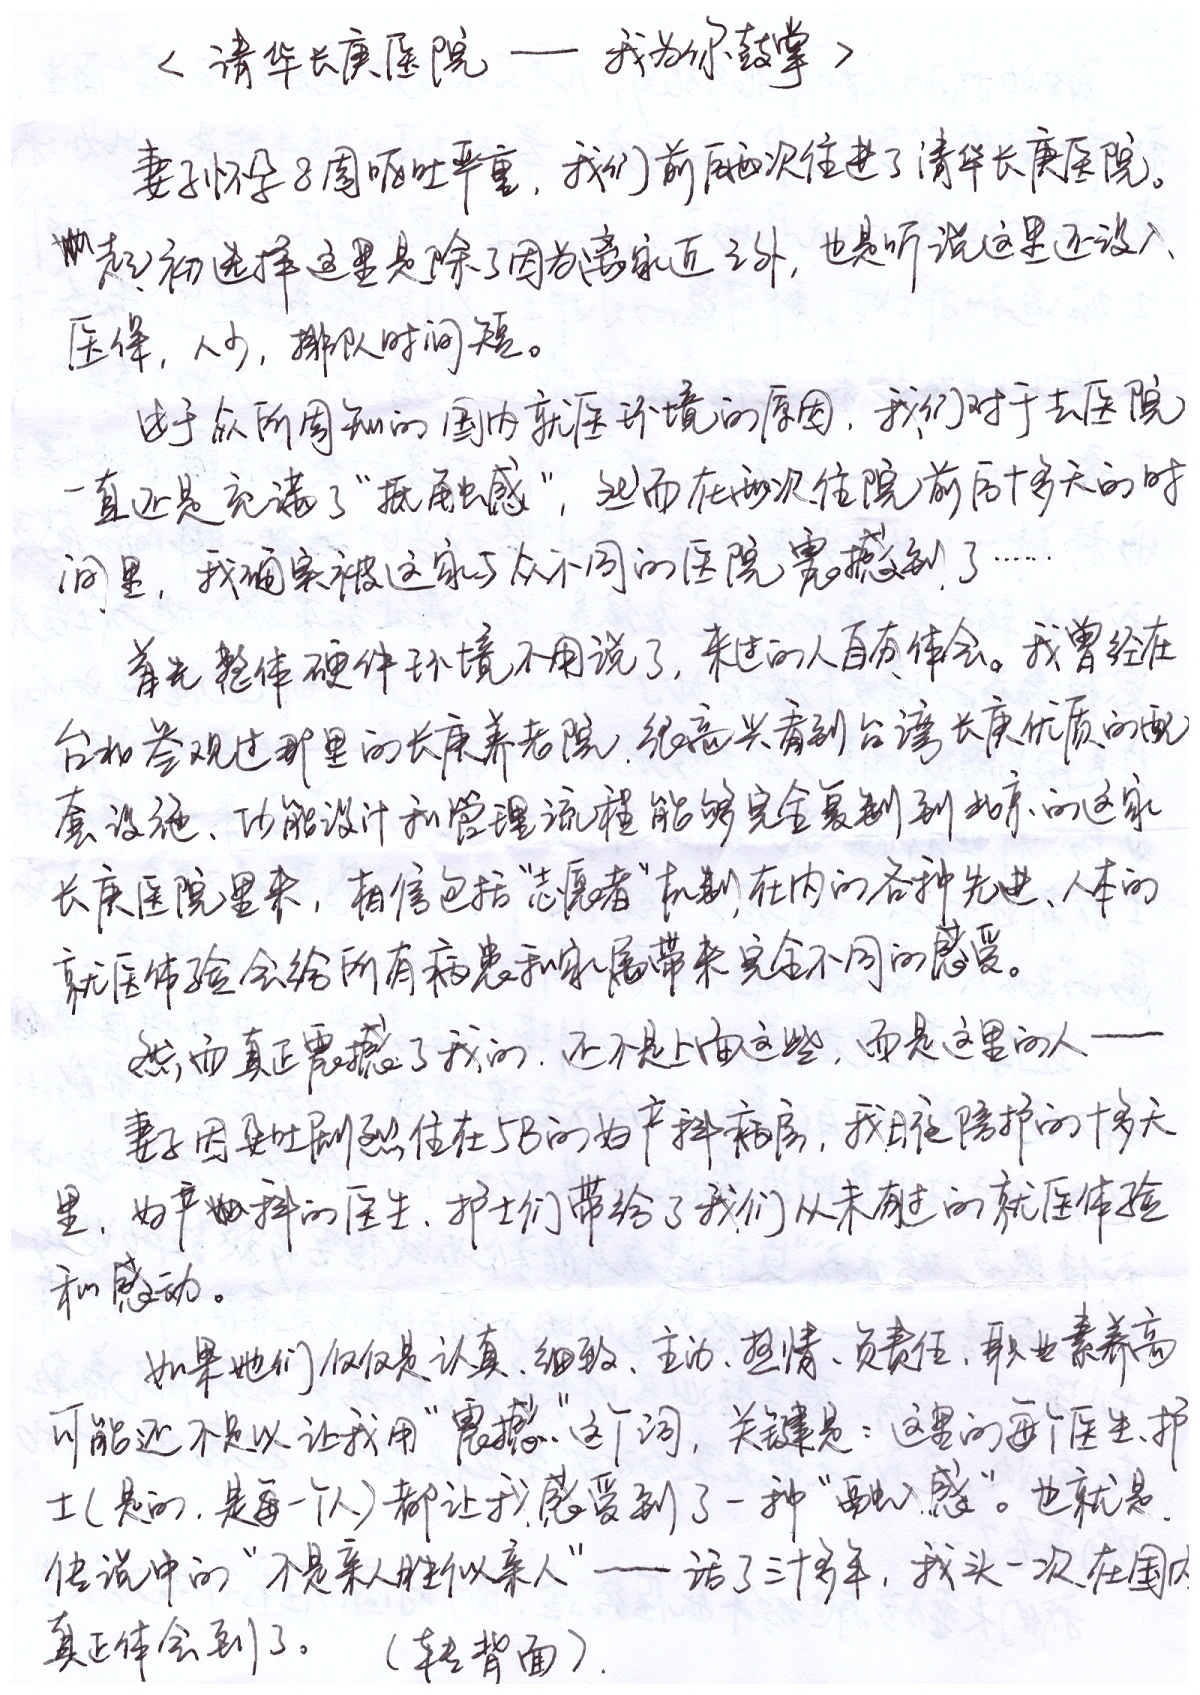 <清华长庚医院——我为你鼓掌>
妻子怀孕8周呕吐严重，我们前后两次住进了清华长庚医院。
起初选择这里是除了因为离家近之外，也是听说这里还没入
医保，人少，排队时间短。
由于众所周知的国内就医环境的原因，我们对于去医院
一直还是充满了“抵触感”，然而在两次住院前后十多天的时
间里，我确实被这家与众不同的医院震撼到了……
首先整体硬件环境不用说了，来过的人自有体会。我曾经在
台北参观过那里的长庚养老院，很高兴看到台湾长庚优质的配
套设施、功能设计和管理流程能够完全复制到北京的这家
长庚医院里来，相信包括“志愿者”机制在内的各种先进、人本的
就医体验会给所有病患和家属带来完全不同的感受。
然而真正震撼了我的，还不是上面这些，而是这里的人——
妻子因孕吐剧烈住在5B的妇产科病房，我日夜陪护的十多天
里，妇产科的医生、护士们带给了我们从未有过的就医体验
和感动。
如果她们仅仅是认真、细致、主动、热情、负责任、职业素养高
可能还不足以让我用“震撼”这个词，关键是：这里的每个医生、护
士（是的，是每一个人）都让我感受到了一种“融入感”。也就是
传说中的“不是亲人胜似亲人”——活了三十多年，我头一次在国内
真正体会到了。 （转背面）.